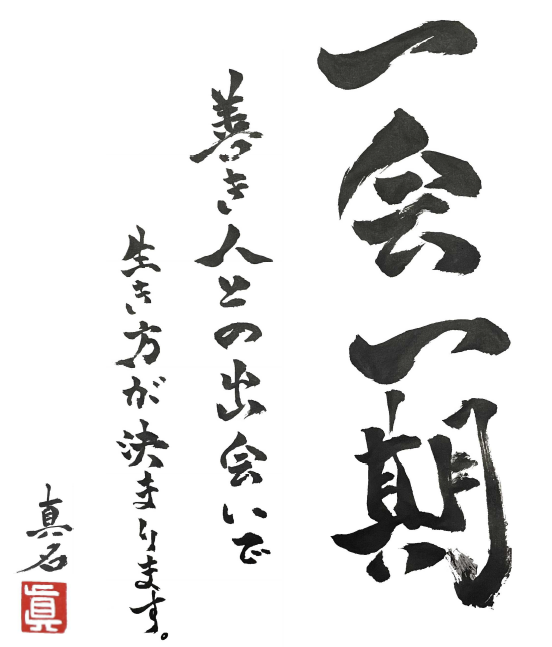 一会一期
善き人との出会いで
生き方が決まります。
真名
眞